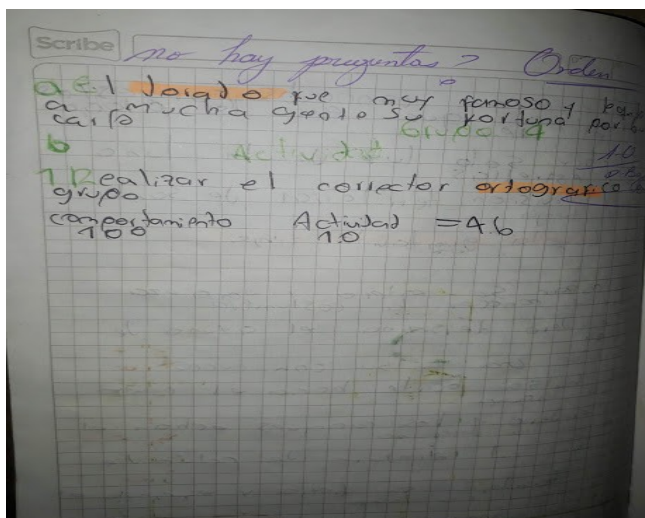 Scribe
no hay preguntas? Orden
a e.l dorado fue muy famoso y
a mucha gente su fortuna por
b Grupo 4
Actividad 10
1 Realizar el corrector ortografico
grupo
comportamiento Actividad = 4.6
100 10